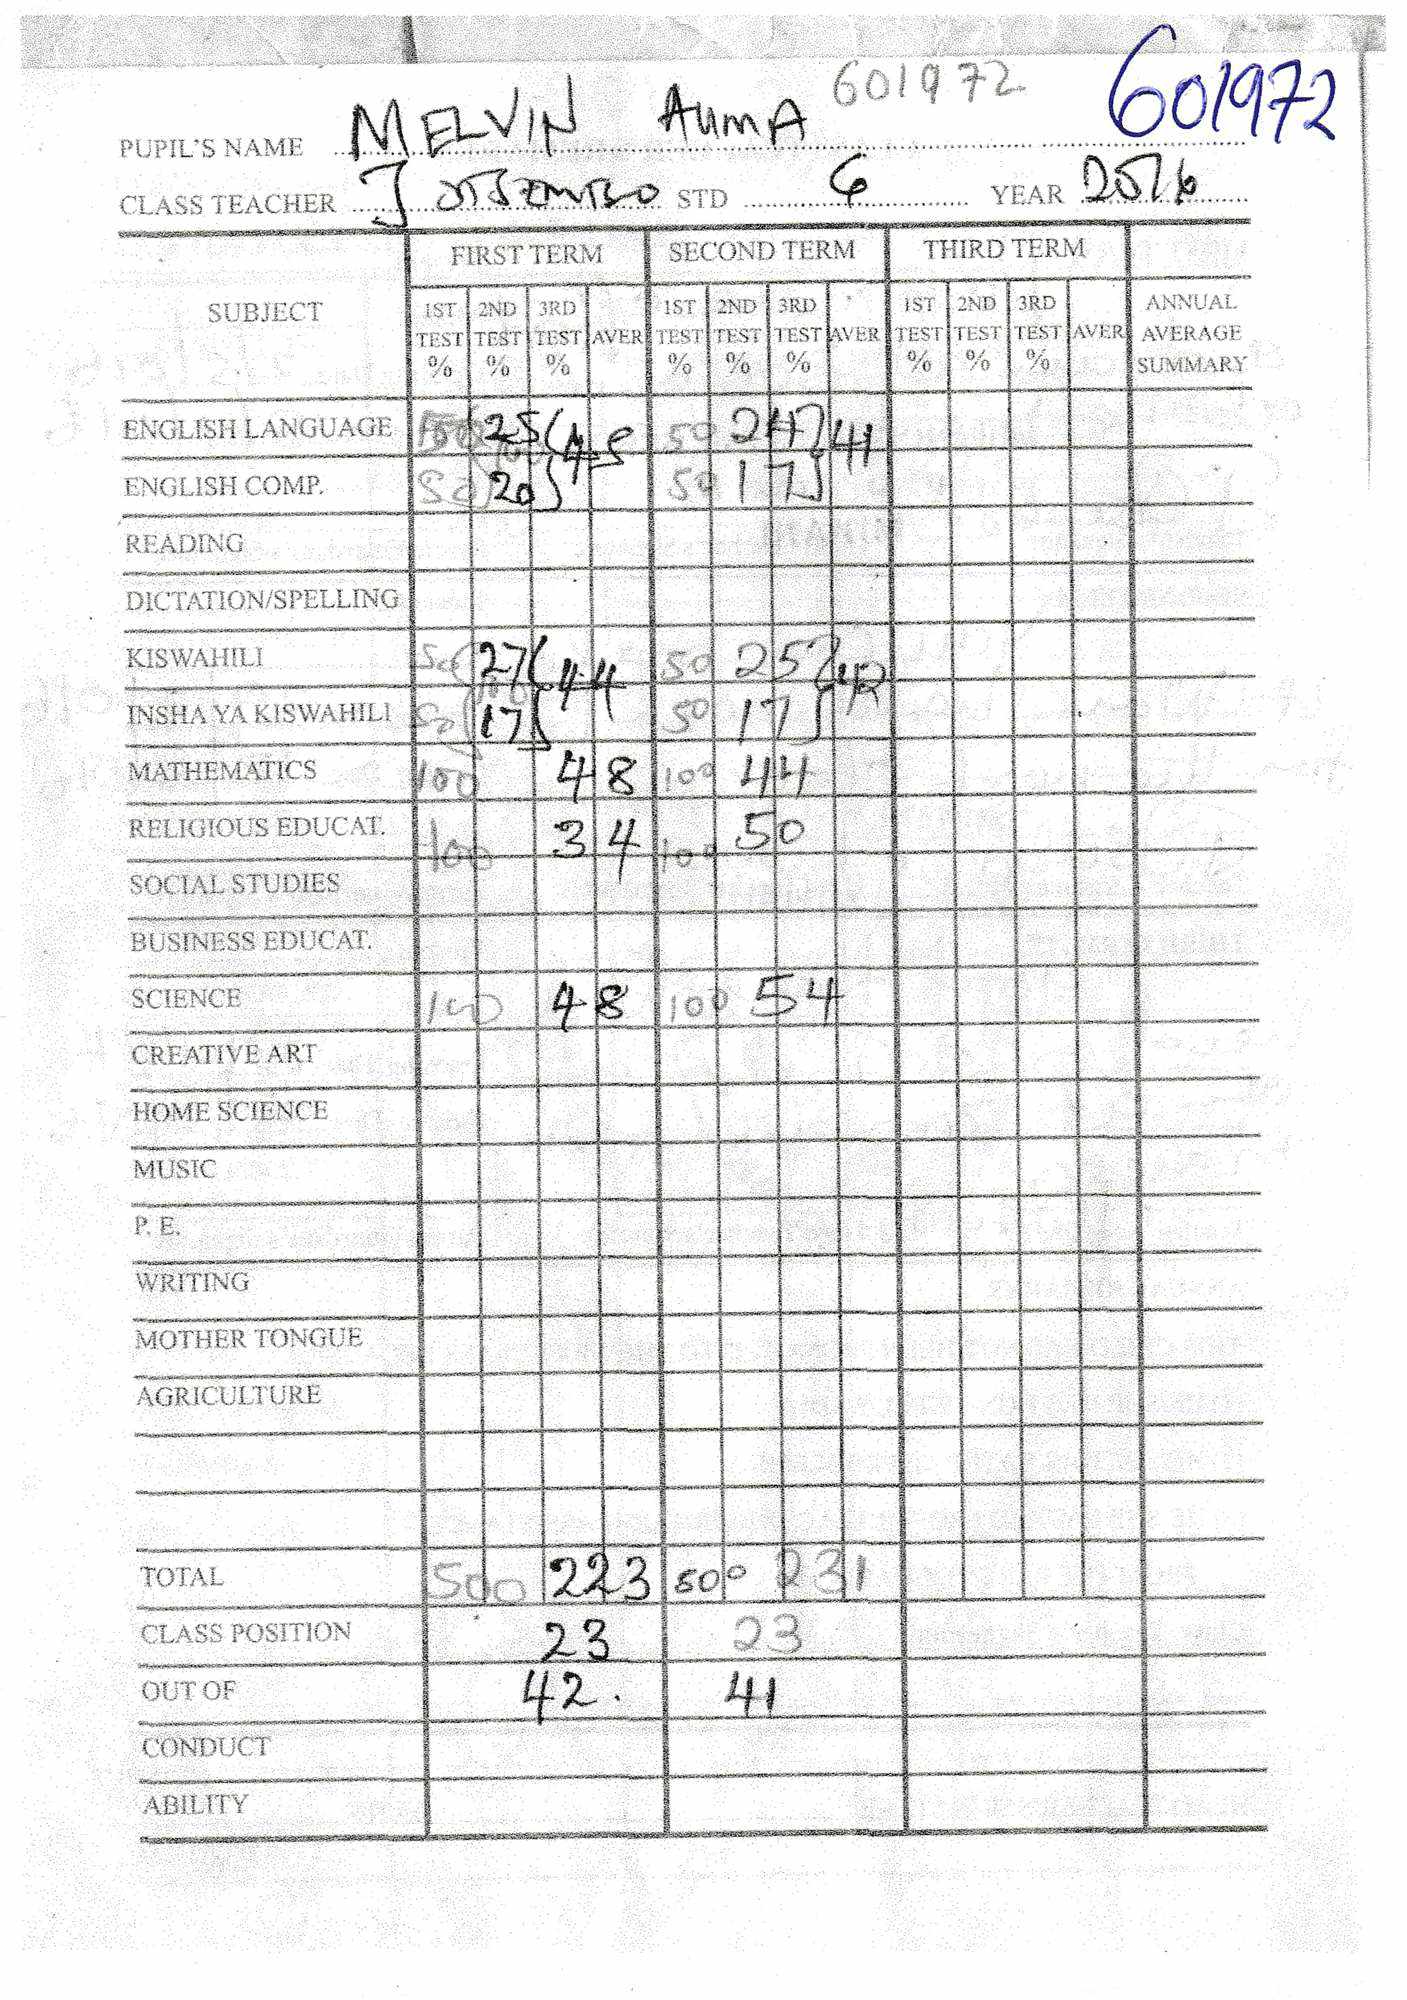 601972
601972
PUPIL'S NAME MELVIN AUMA
CLASS TEACHER J STD 6 YEAR 2016
FIRST TERM SECOND TERM THIRD TERM
SUBJECT 1ST TEST % 2ND TEST % 3RD TEST % AVER 1ST TEST % 2ND TEST % 3RD TEST % AVER 1ST TEST % 2ND TEST % 3RD TEST % AVER ANNUAL AVERAGE SUMMARY
ENGLISH LANGUAGE 25 45 50 24 41
ENGLISH COMP. 50 20 50 17
READING
DICTATION/SPELLING
KISWAHILI 50 27 44 50 25 42
INSHA YA KISWAHILI 50 17 50 17
MATHEMATICS 100 48 100 44
RELIGIOUS EDUCAT. 100 34 100 50
SOCIAL STUDIES
BUSINESS EDUCAT.
SCIENCE 100 48 100 54
CREATIVE ART
HOME SCIENCE
MUSIC
P. E.
WRITING
MOTHER TONGUE
AGRICULTURE
TOTAL 500 223 500 231
CLASS POSITION 23 23
OUT OF 42. 41
CONDUCT
ABILITY